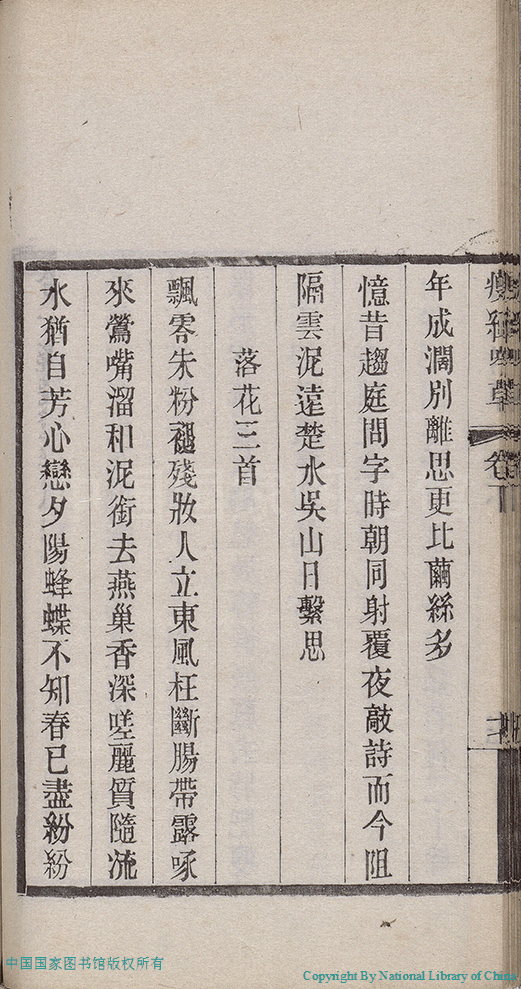 年成濶別離思更比繭絲多
憶昔趨庭問字時朝同射覆夜敲詩而今阻
隔雲泥遠楚水吳山日繫思
落花三首
飄零朱粉褪殘妝人立東風枉斷腸帶露啄
來鶯嘴溜和泥銜去燕巢香深嗟麗質隨流
水猶自芳心戀夕陽蜂蝶不知春已盡紛紛
中国国家图书馆版权所有
Copyright By National Library of China